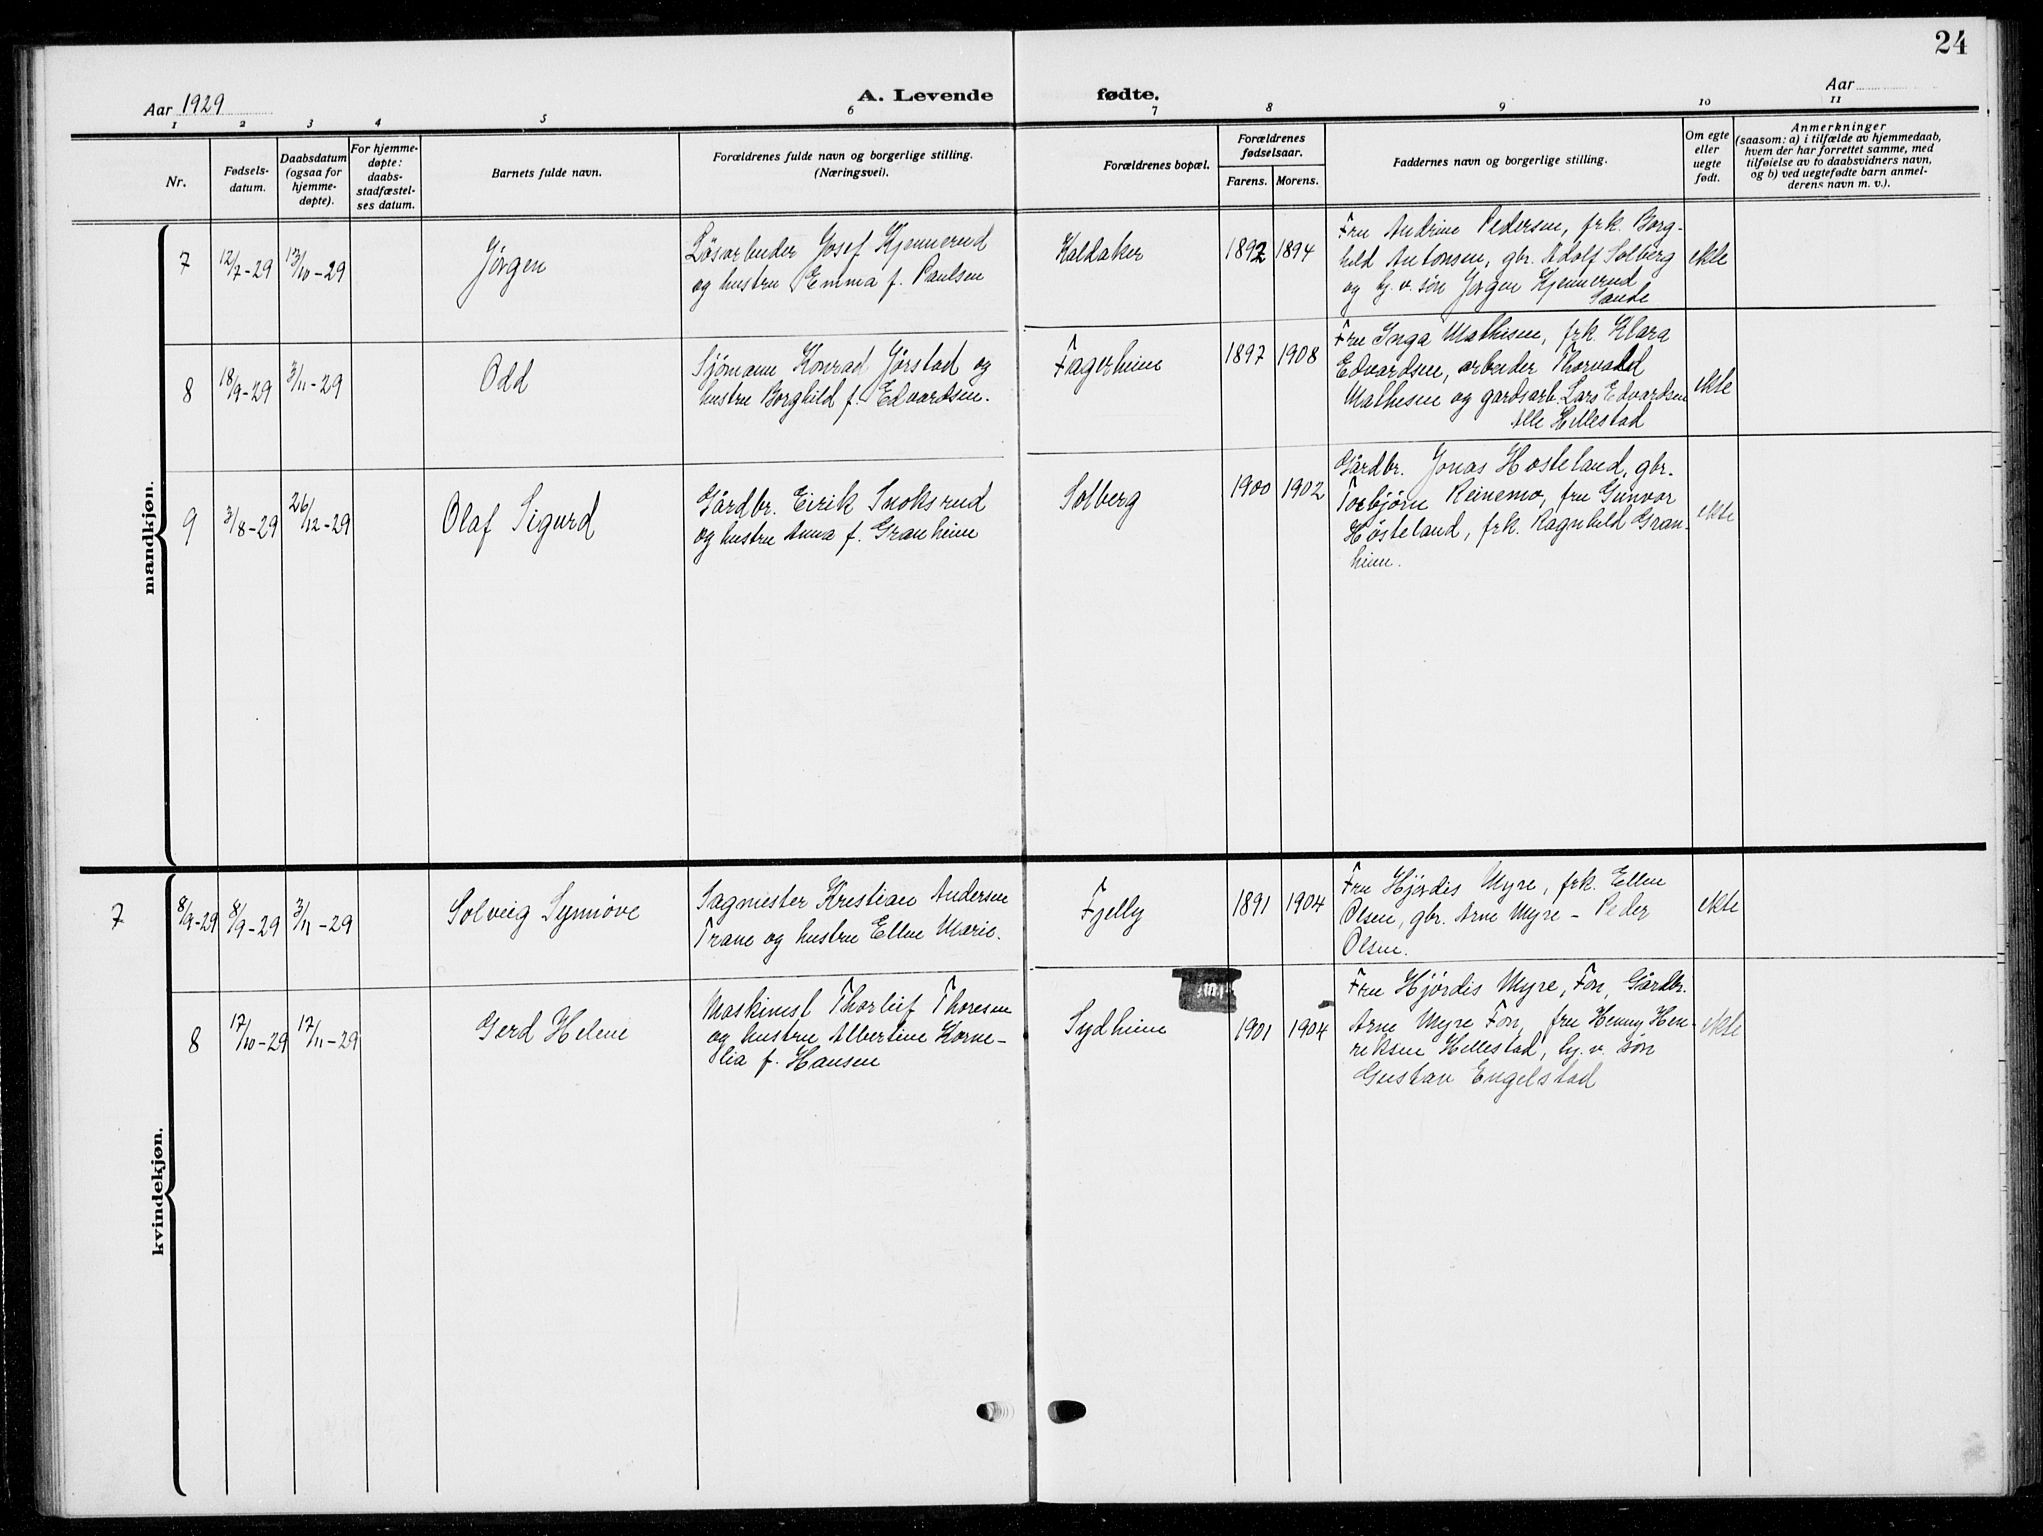 24
Aar 1929
A. Levende fødte.
Aar
1 2 3 4 5 6 7 8 9 10 11
Nr.
Fødsels-
datum.
Daabsdatum
(ogsaa for
hjemme-
døpte).
For hjemme-
døpte:
daabs-
stadfæstel-
ses datum.
Barnets fulde navn.
Forældrenes fulde navn og borgerlige stilling.
(Næringsvei).
Forældrenes bopæl.
Forældrenes
fødselsaar.
Farens. Morens.
Faddernes navn og borgerlige stilling.
Om egte
eller
uegte
født.
Anmerkninger
(saasom: a) i tilfælde av hjemmedaab,
hvem der har forrettet samme, med
tilføielse av to daabsvidners navn,
og b) ved uegtefødte barn anmel-
derens navn m. v.).
mandkjøn.
7
12/7-29
13/10-29
Jørgen
Løsarbeider Josef Kjennerud
og hustru Emma f. Paulsen
Kaldaker
1892
1894
Fru Andrine Pedersen, frk. Borg-
hild Antonsen, gbr. Adolf Solberg
og hj. v. søn Jørgen Kjennerud
Sande
ekte
8
18/9-29
3/11-29
Odd
Sjømann Konrad Jørstad og
hustru Borghild f. Edvardsen.
Fagerheim
1897
1908
Fru Inga Mathisen, frk. Klara
Edvardsen, arbeider Thorvald
Mathisen og gardsarb. Lars Edvardsen
Alle Hillestad
ekte
9
3/8-29
26/12-29
Olaf Sigurd
Gårdbr. Eirik Snoksrud
og hustru Anna f. Granheim
Solberg
1900
1902
Gårdbr. Jonas Høsteland, gbr.
Torbjørn Reinemo, fru Gunvor
Høsteland, frk. Ragnhild Gran-
heim.
ekte
kvindekjøn.
7
8/9-29
8/9-29
3/11-29
Solveig Synnøve
Sagmester Kristian Andersen
Trane og hustru Ellen Marie.
Fjelly
1891
1904
Fru Hjørdis Myre, frk. Ellen
Olsen, gbr. Arne Myre - Peder
Olsen.
ekte
8
17/10-29
17/11-29
Gerd Helene
Maskinist Thorleif Thoresen
og hustru Albertine Korne-
lia f. Hansen
Sydheim
1901
1904
Fru Hjørdis Myre, Fon, Gårdbr.
Arne Myre Fon, fru Henny Hen-
riksen Hillestad, hj. v. søn
Gustav Engelstad
ekte